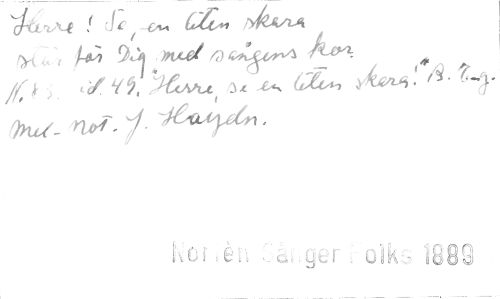 Herre! Se, en liten skara
står för Dig med sångens kor.
N. 83. id. 49. "Herre, se en liten skara!" B.
Mel. not. J. Haydn.
Norlén Sånger Folks 1889